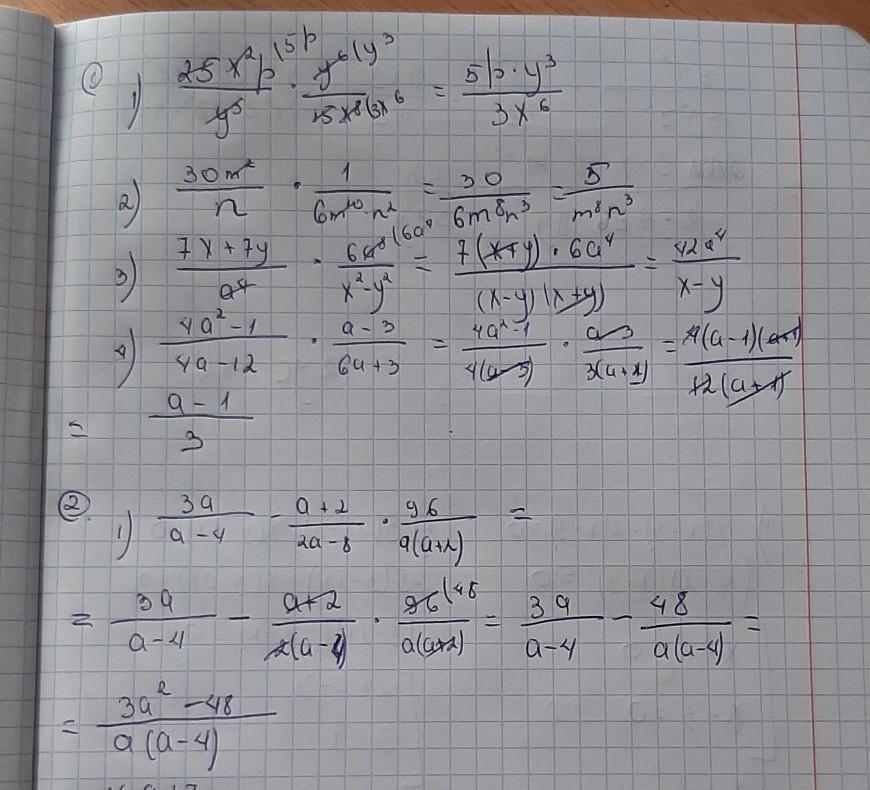 ① 1) 25x²p/y³ · y⁶(y³/15x⁸(3x⁶ (5p = 5p·y³/3x⁶
2) 30m²/n · 1/6m¹⁰·n² = 30/6m⁸n³ = 5/m⁸n³
3) 7x+7y/a⁴ · 6a⁸(6a⁴/x²-y² = 7(x+y)·6a⁴/(x-y)(x+y) = 42a⁴/x-y
4) 4a²-1/4a-12 · a-3/6a+3 = 4a²-1/4(a-3) · a-3/3(a+1) = 4(a-1)(a+1)/12(a+1)
= a-1/3
② 1) 3a/a-4 - a+2/2a-8 · 96/a(a+2) =
= 3a/a-4 - a+2/2(a-4) · 96(48/a(a+2) = 3a/a-4 - 48/a(a-4) =
= 3a²-48/a(a-4)